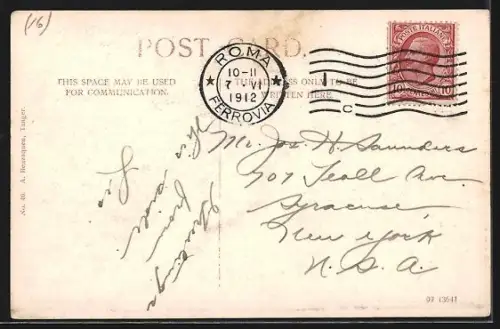 (16)
POST CARD.
THIS SPACE MAY BE USED
FOR COMMUNICATION.
ONLY TO BE
WRITTEN HERE.
ROMA
10-11
7 VI
1912
FERROVIA
C
POSTE ITALIANE
10 10
No. 49. A. Benzaquen, Tanger.
Greetings
from
Mr. Jos. H. Saunders
707 Teall Ave.
Syracuse,
New York
N.S.A.